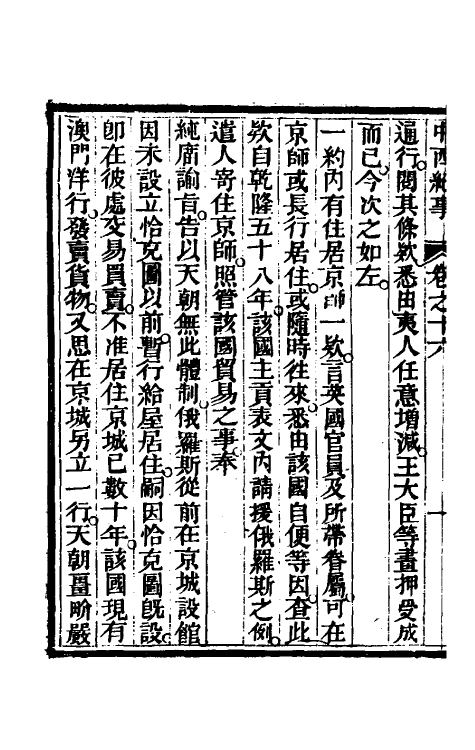 中西紀事 卷之十六 一
通行閱其條欵悉由夷人任意增減王大臣等畫押受成
而已今次之如左
一約內有住居京師一欵言英國官員及所帶眷屬可在
京師或長行居住或隨時往來悉由該國自便等因查此
欵自乾隆五十八年該國主貢表文內請援俄羅斯之例
遣人寄住京師照管該國貿易之事奉
純庙諭旨告以天朝無此體制俄羅斯從前在京城設館
因未設立恰克圖以前暫行給屋居住嗣因恰克圖旣設
卽在彼處交易買賣不准居住京城已數十年該國現有
澳門洋行發賣貨物又思在京城另立一行天朝畺畍嚴